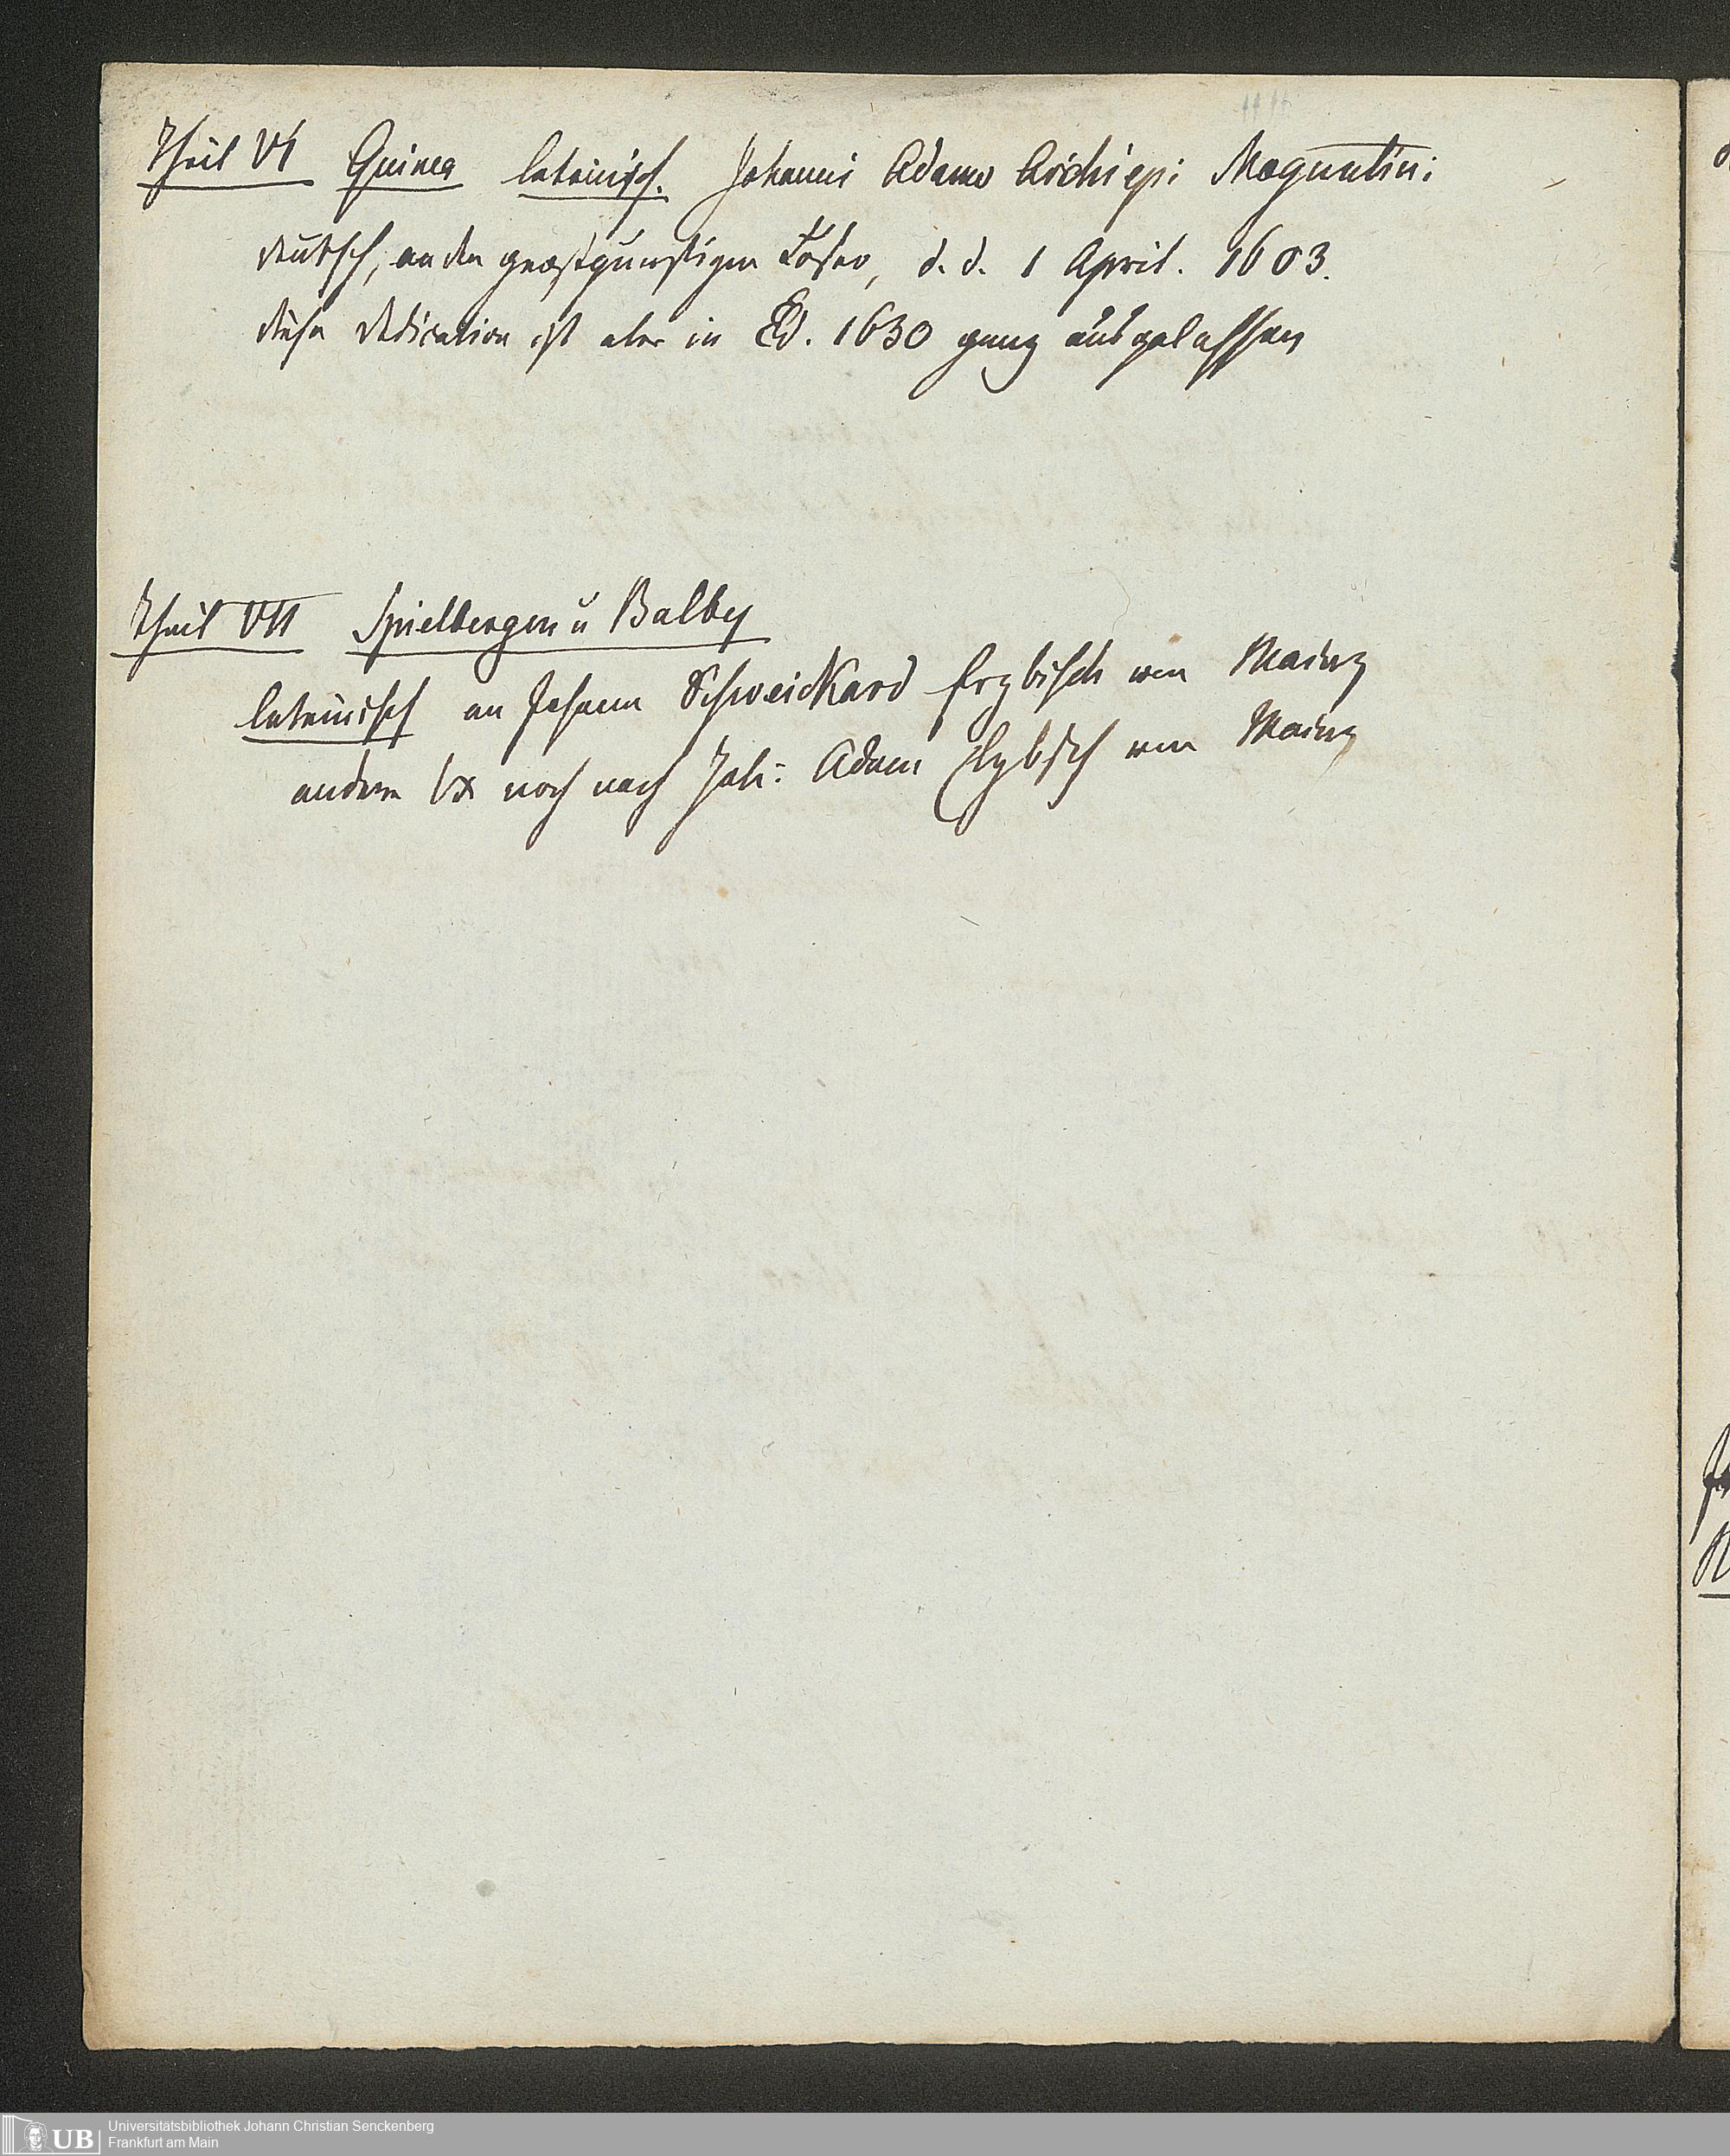 Theil VI Guinea lateinisch. Johanni Adamo Archiepi Moguntini
deutsch, an den großgünstigen Leser, d. d. 1 April. 1603.
diese Dedication ist aber in Ed. 1630 ganz ausgelassen
Theil VII Spielbergen u Balby
lateinisch an Johann Schweickard Erzbisch von Mainz
andere noch nach Joh: Adam Erzbsch von Mainz
UB Universitätsbibliothek Johann Christian Senckenberg
Frankfurt am Main